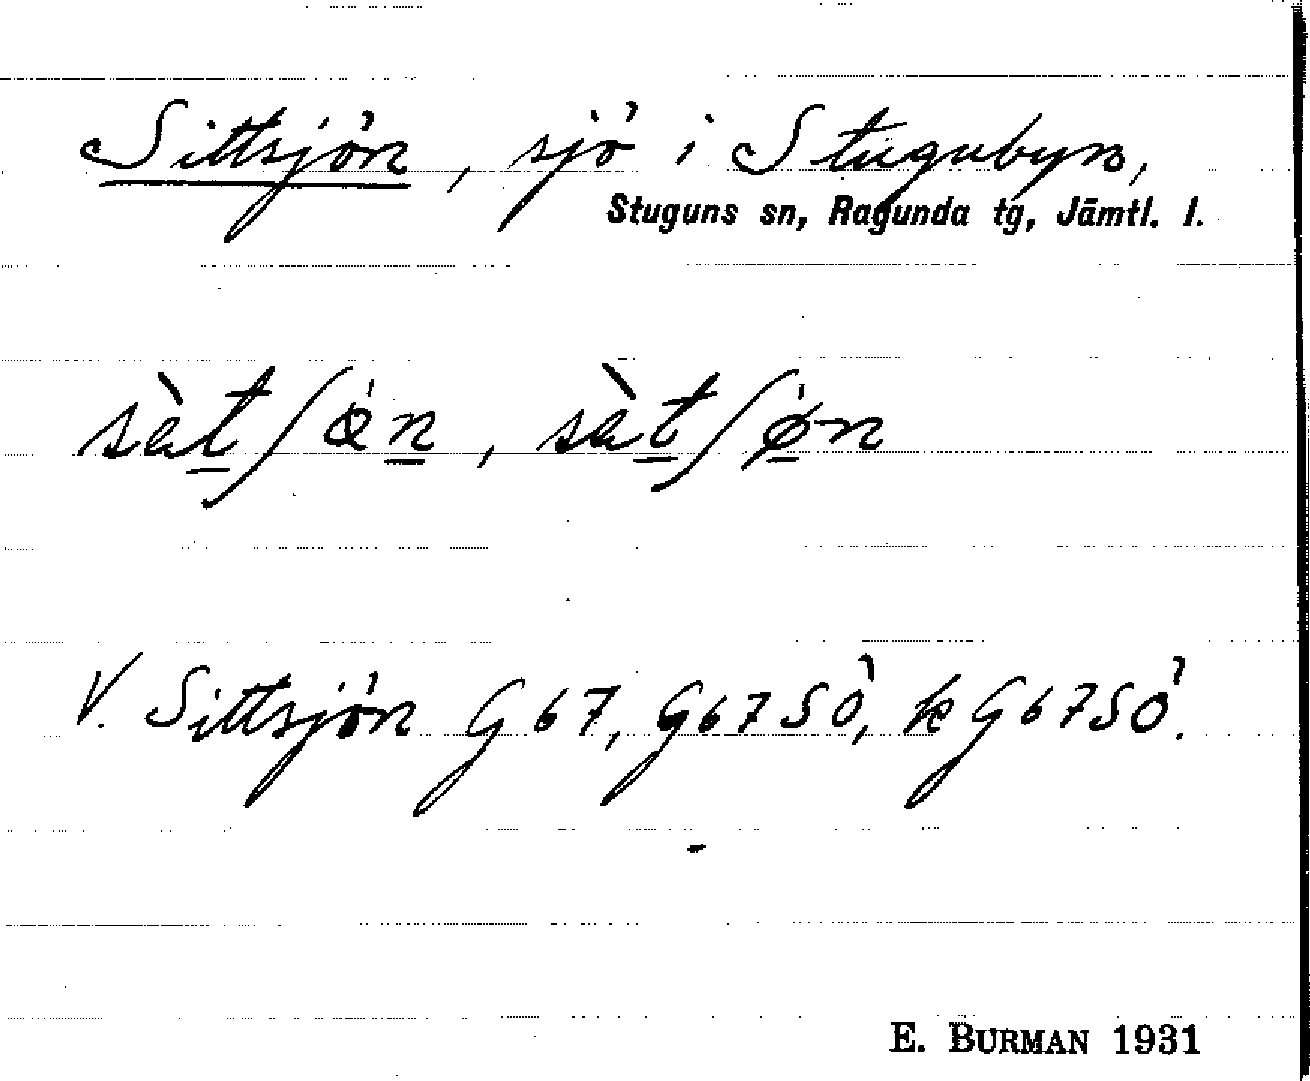 Sittsjön, sjö i Stugubyn,
Stuguns sn, Ragunda tg, Jämtl. l.
sὲt∫ǿn, sὲt∫ǿn
V. Sittsjön G 67, G67 SÖ, kG67SÖ.
E. BURMAN 1931